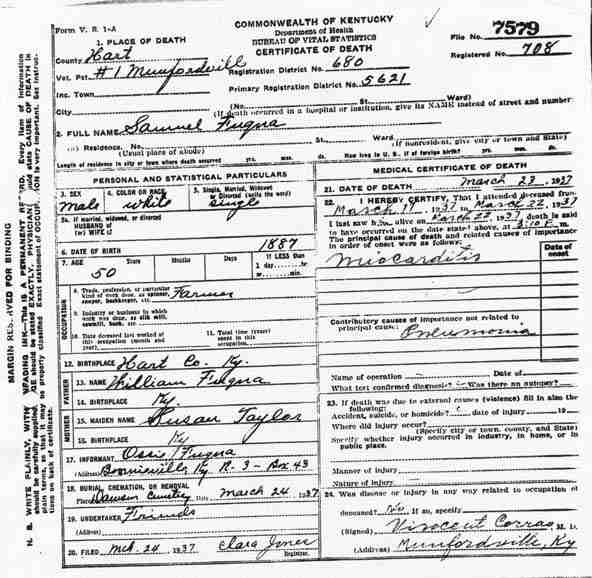 Form V. S. 1-A
COMMONWEALTH OF KENTUCKY
Department of Health
BUREAU OF VITAL STATISTICS
CERTIFICATE OF DEATH
File No. 7579
Registered No. 708
1. PLACE OF DEATH
County Hart
Vot. Pct. #1 Munfordville
Registration District No. 680
Inc. Town
Primary Registration District No. 5621
City (No. St. Ward)
(If death occurred in a hospital or institution, give its NAME instead of street and number
2. FULL NAME Samuel Fuqua
(a) Residence. No. St., Ward.
(Usual place of abode) (If nonresident, give city or town and State)
Length of residence in city or town where death occurred yrs. mos. ds. How long in U. S., if of foreign birth? yrs. mos.
PERSONAL AND STATISTICAL PARTICULARS
3. SEX Male
4. COLOR OR RACE White
5. Single, Married, Widowed or Divorced (write the word) Single
5a. If married, widowed, or divorced
HUSBAND of
(or) WIFE of
6. DATE OF BIRTH 1887
7. AGE 50 Years Months Days If LESS than 1 day hr or min.
OCCUPATION
8. Trade, profession, or particular kind of work done, as spinner, sawyer, bookkeeper, etc. Farmer
9. Industry or business in which work was done, as silk mill, sawmill, bank, etc.
10. Date deceased last worked at this occupation (month and year)
11. Total time (years) spent in this occupation
12. BIRTHPLACE Hart Co. Ky.
FATHER
13. NAME William Fuqua
14. BIRTHPLACE Ky.
MOTHER
15. MAIDEN NAME Susan Taylor
16. BIRTHPLACE Ky
17. INFORMANT Ossie Fuqua
(Address) Bonnieville, Ky R. 3 - Box 43
18. BURIAL, CREMATION, OR REMOVAL
Place Dawson Cemetery Date March 24, 1937
19. UNDERTAKER Friends
(Address)
20. FILED Mch. 24 1937 Clara Jones
Registrar.
MEDICAL CERTIFICATE OF DEATH
21. DATE OF DEATH March 23, 1937
22. I HEREBY CERTIFY, That I attended deceased from
March 17, 1937 to March 22, 1937
I last saw him alive on March 22, 1937 death is said
to have occurred on the date stated above, at 3:10 P. m.
The principal cause of death and related causes of importance
in order of onset were as follows:
Date of onset
Miocarditis
Contributory causes of importance not related to
principal cause:
Pneumonia
Name of operation Date of
What test confirmed diagnosis? Was there an autopsy?
23. If death was due to external causes (violence) fill in also the
following:
Accident, suicide, or homicide? date of injury 19
Where did injury occur?
(Specify city or town, county, and State)
Specify whether injury occurred in industry, in home, or in
public place.
Manner of injury
Nature of injury
24. Was disease or injury in any way related to occupation of
deceased? No If so, specify
(Signed) Vincent Corrao M. D.
(Address) Munfordville, Ky
MARGIN RESERVED FOR BINDING